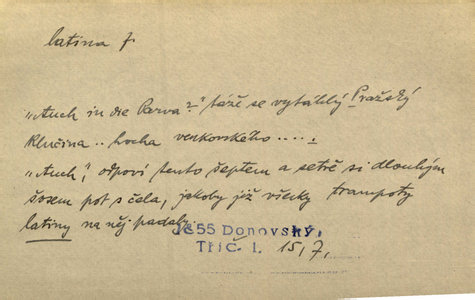 latina f.
„Auch in die Parva?" táže se vytáhlý Pražský
klučina .. hocha venkovského .....
„Auch", odpoví tento šeptem a setře si dlouhým
šosem pot s čela, jakoby již všecky trampoty
latiny na něj padaly.
Jé55 Donovský,
Třič. 1. 15/7.